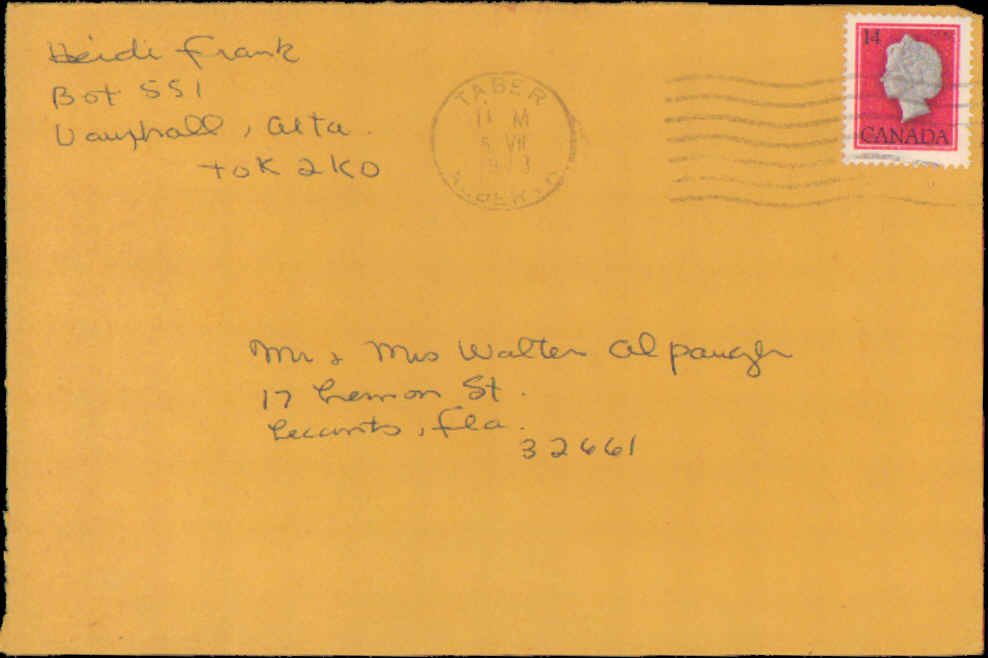 Heidi Frank
Box 551
Vauxhall, Alta.
T0K 2K0
TABER
M
VII
ALBERTA
14
CANADA
Mr & Mrs Walter Alpaugh
17 Lemon St.
Lecanto, Fla.
32661